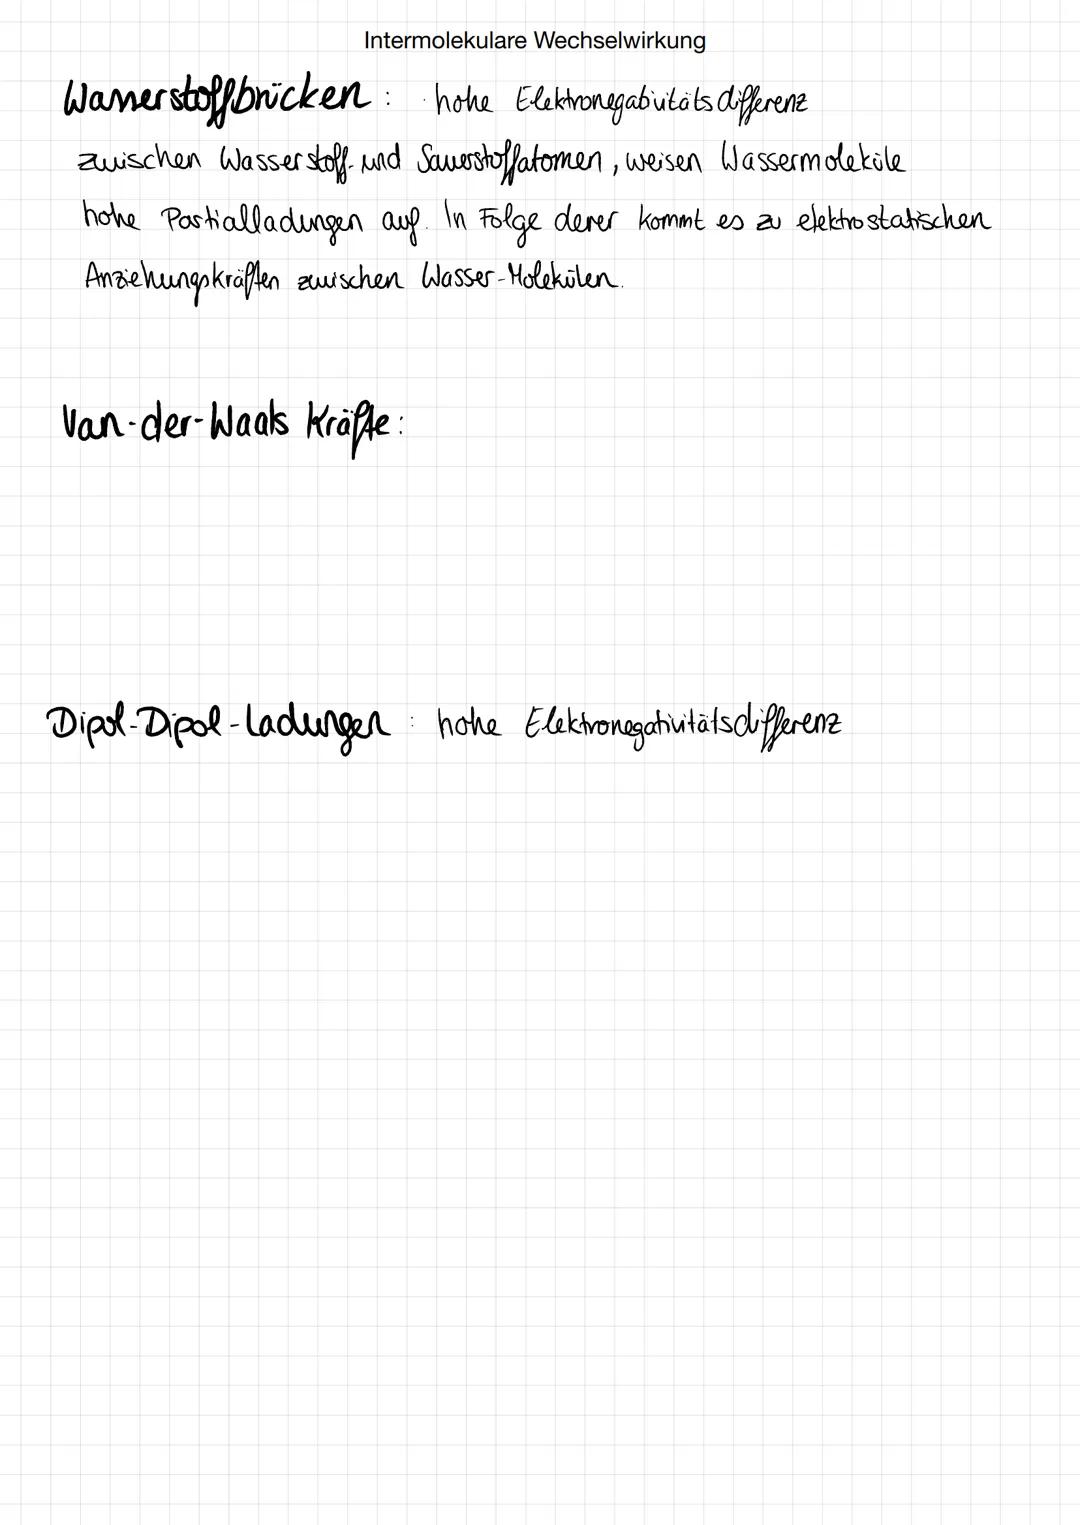 Intermolekulare Wechselwirkung
Wasserstoffbrücken : hohe Elektronegativitätsdifferenz
zwischen Wasserstoff- und Sauerstoffatomen, weisen Wassermoleküle
hohe Partialladungen auf. In Folge derer kommt es zu elektrostatischen
Anziehungskräften zwischen Wasser-Molekülen.
Van-der-Waals Kräfte:
Dipol-Dipol-Ladungen : hohe Elektronegativitätsdifferenz